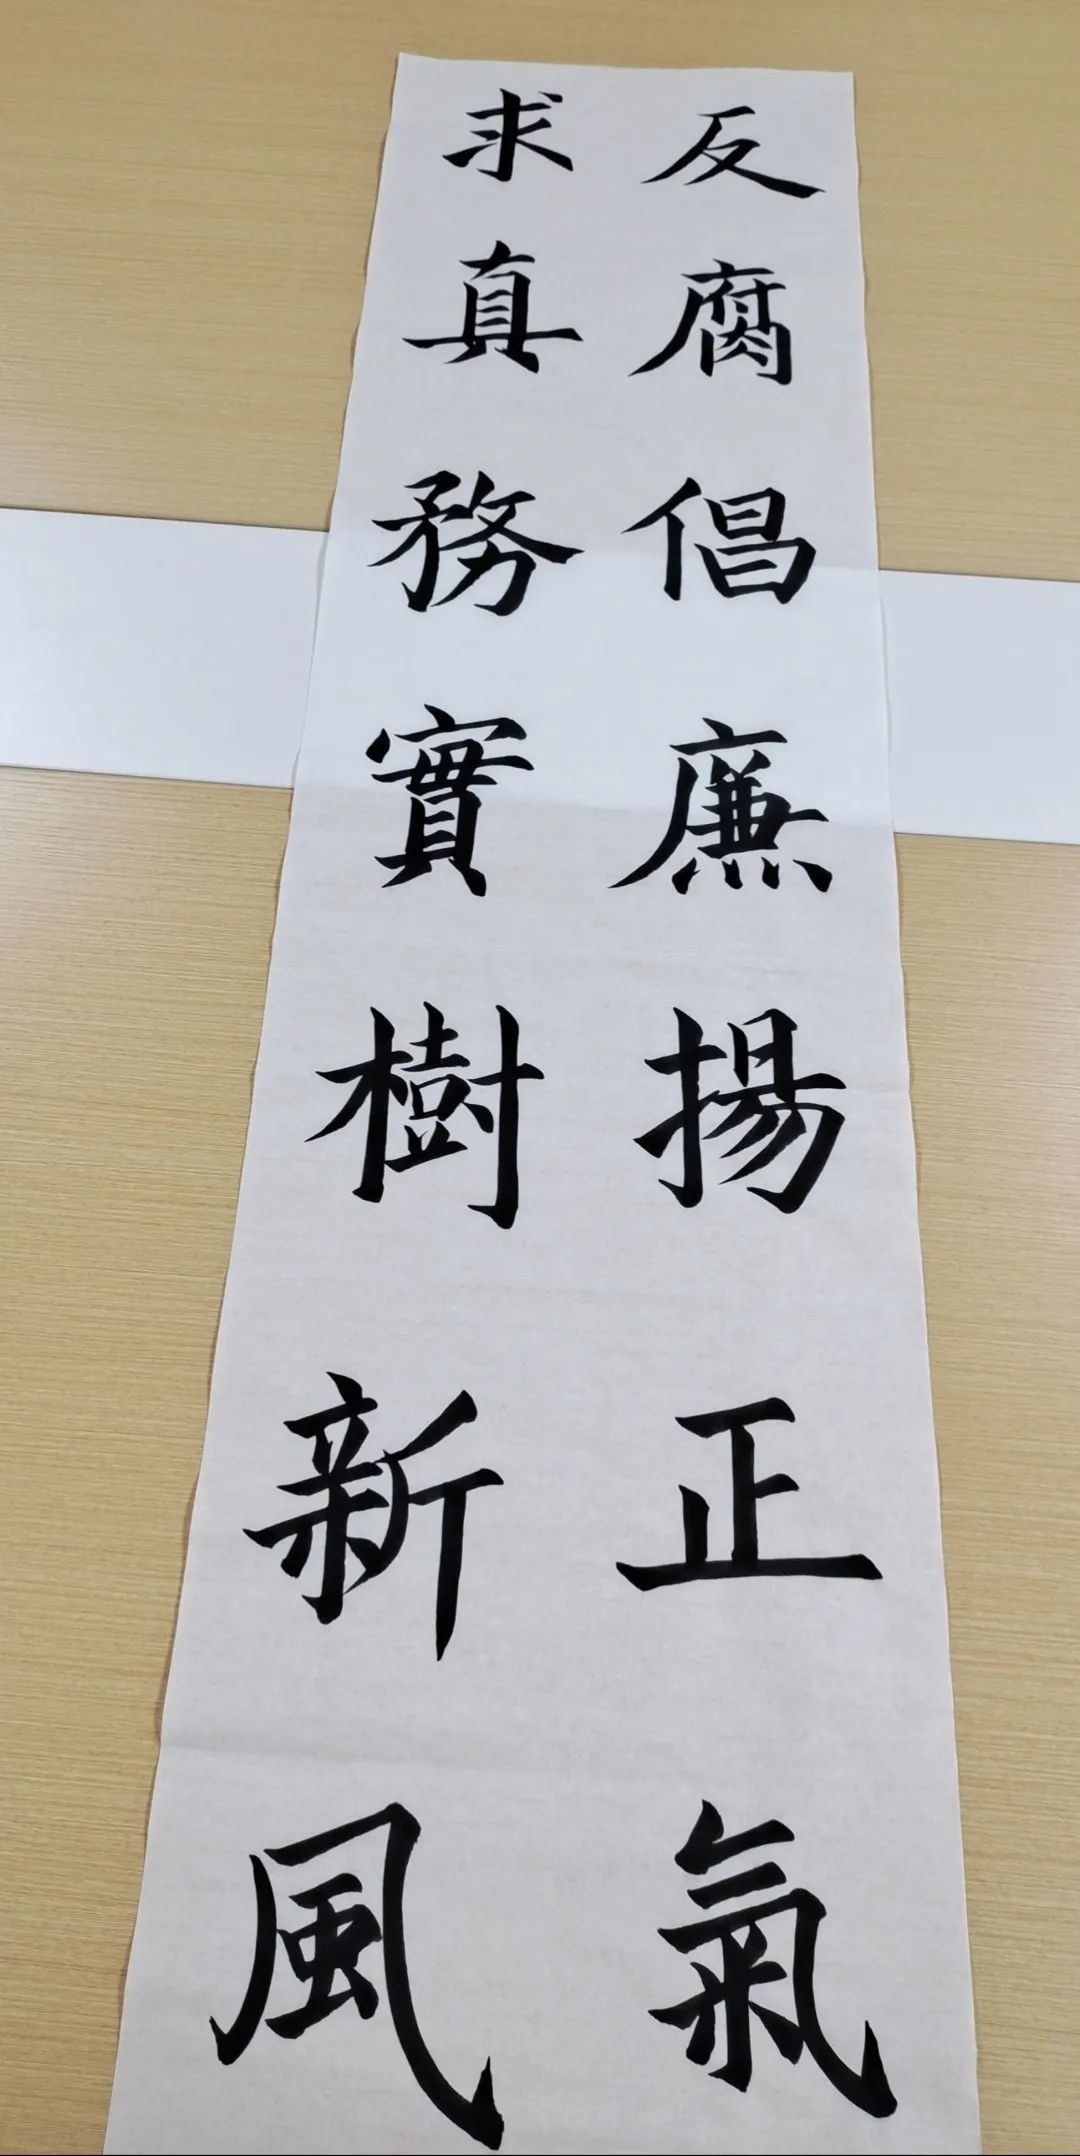 反腐倡廉揚正氣
求真務實樹新風